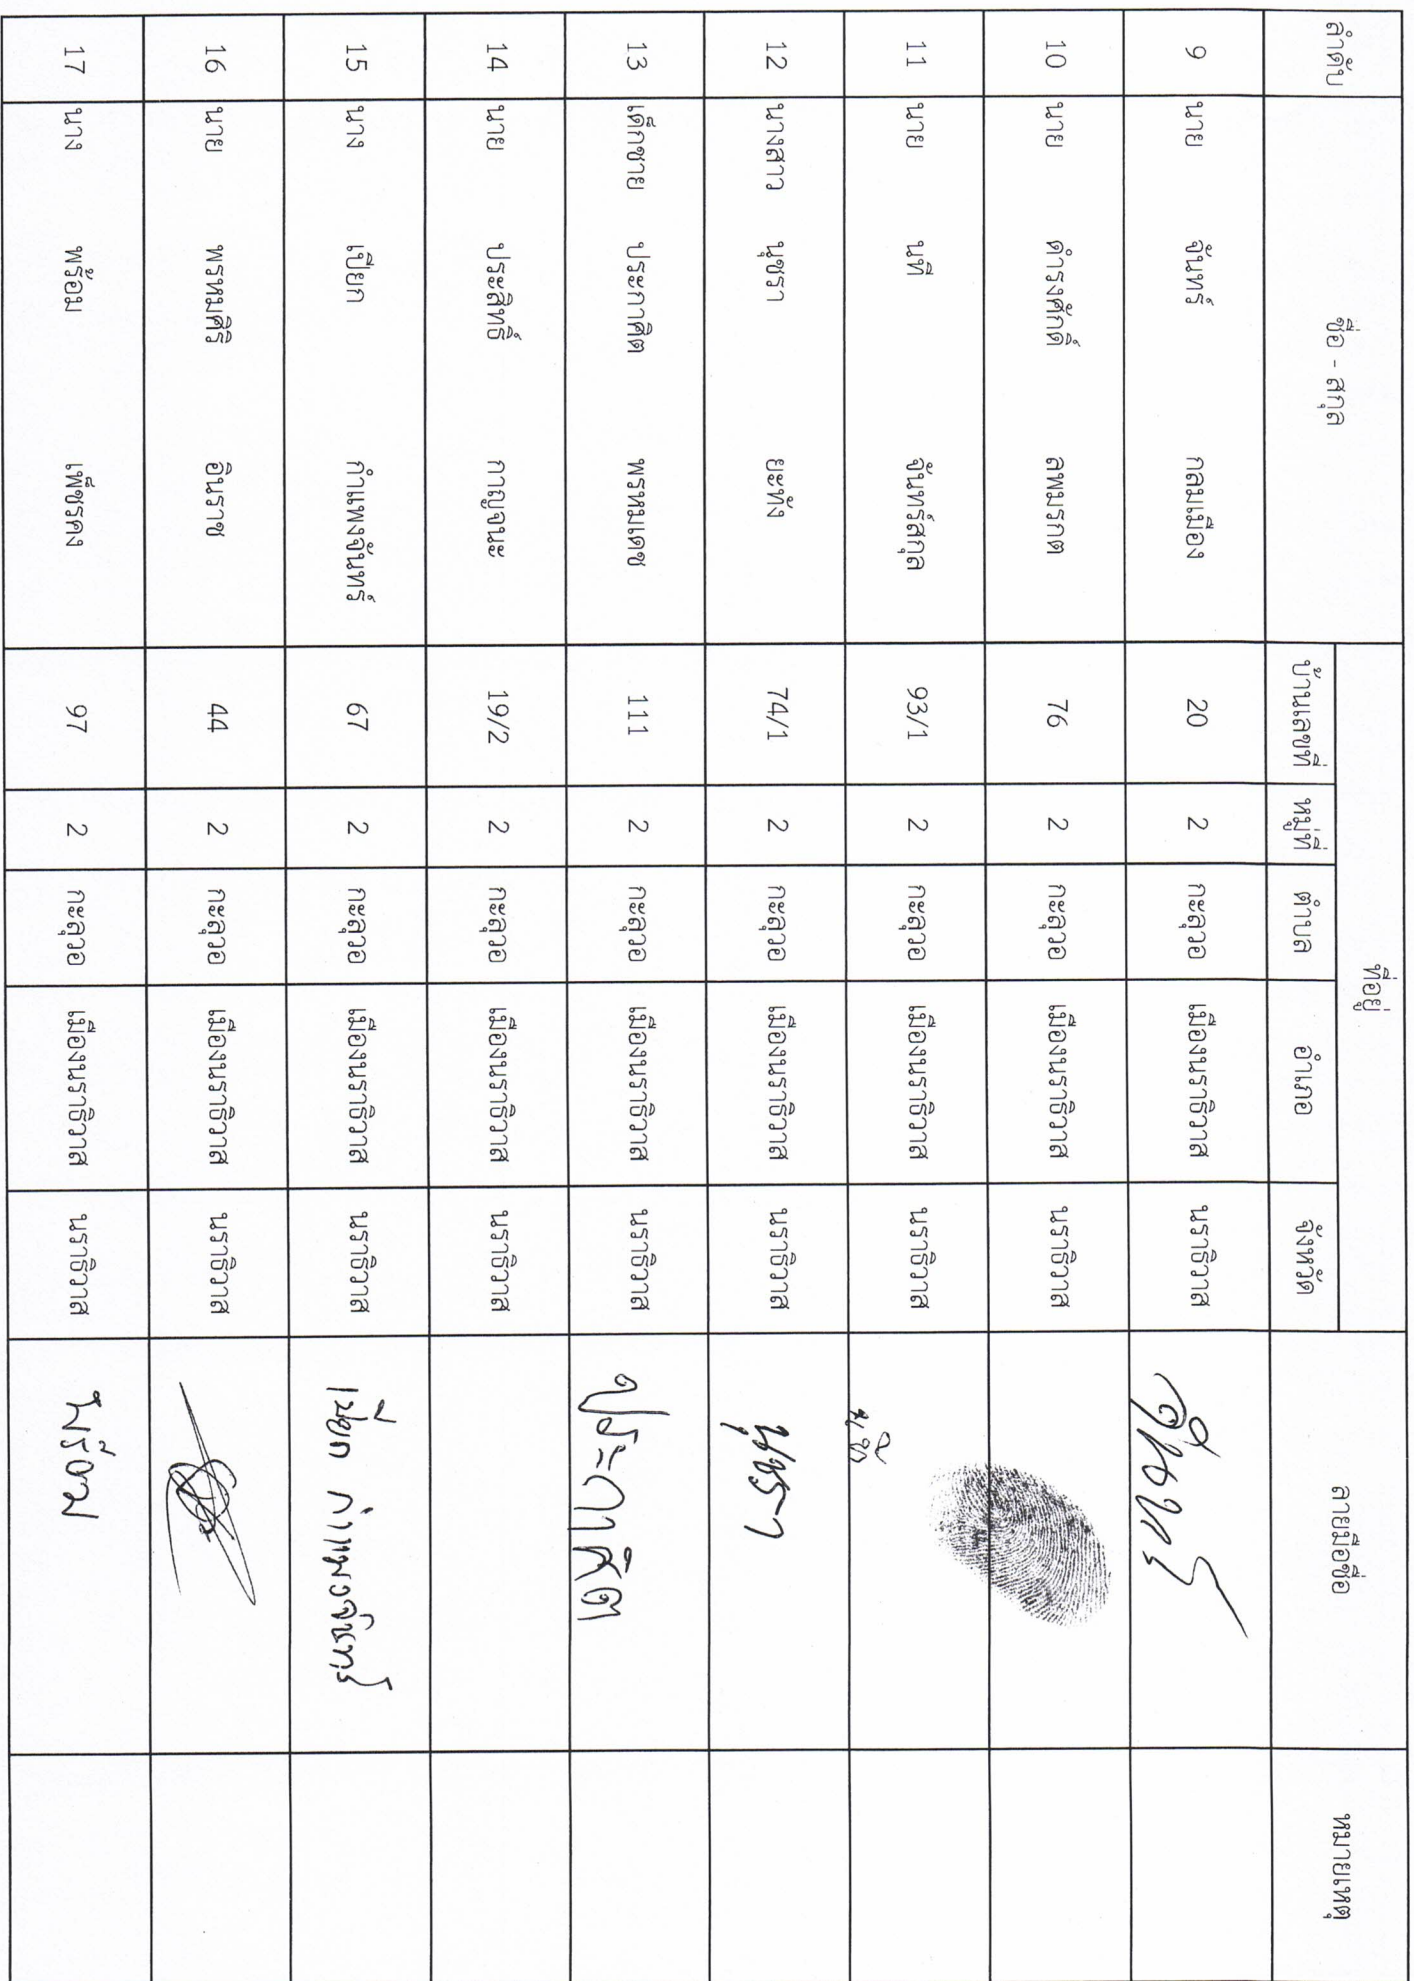 ลำดับ ชื่อ - สกุล ที่อยู่ ลายมือชื่อ หมายเหตุ
บ้านเลขที่ หมู่ที่ ตำบล อำเภอ จังหวัด
9 นาย จันทร์ กลมเมือง 20 2 กะลุวอ เมืองนราธิวาส นราธิวาส
10 นาย ดำรงศักดิ์ ลพมรกต 76 2 กะลุวอ เมืองนราธิวาส นราธิวาส
11 นาย นที จันทร์สกุล 93/1 2 กะลุวอ เมืองนราธิวาส นราธิวาส
12 นางสาว นุชรา ยะทัง 74/1 2 กะลุวอ เมืองนราธิวาส นราธิวาส นุชรา
13 เด็กชาย ประกาศิต พรหมเดช 111 2 กะลุวอ เมืองนราธิวาส นราธิวาส ประกาศิต
14 นาย ประสิทธิ์ กาญจนะ 19/2 2 กะลุวอ เมืองนราธิวาส นราธิวาส
15 นาง เปียก กำแพงจันทร์ 67 2 กะลุวอ เมืองนราธิวาส นราธิวาส เปียก กำแพงจันทร์
16 นาย พรหมศิริ อินราช 44 2 กะลุวอ เมืองนราธิวาส นราธิวาส
17 นาง พร้อม เพ็ชรคง 97 2 กะลุวอ เมืองนราธิวาส นราธิวาส พร้อม